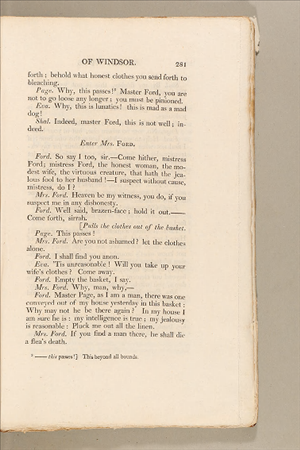 OF WINDSOR. 281
forth: behold what honest clothes you send forth to
bleaching.
Page. Why, this passes!³ Master Ford, you are
not to go loose any longer; you must be pinioned.
Eva. Why, this is lunatics! this is mad as a mad
dog!
Shal. Indeed, master Ford, this is not well; in-
deed.
Enter Mrs. FORD.
Ford. So say I too, sir.—Come hither, mistress
Ford; mistress Ford, the honest woman, the mo-
dest wife, the virtuous creature, that hath the jea-
lous fool to her husband!—I suspect without cause,
mistress, do I?
Mrs. Ford. Heaven be my witness, you do, if you
suspect me in any dishonesty.
Ford. Well said, brazen-face; hold it out.——
Come forth, sirrah.
[Pulls the clothes out of the basket.
Page. This passes!
Mrs. Ford. Are you not ashamed? let the clothes
alone.
Ford. I shall find you anon.
Eva. 'Tis unreasonable! Will you take up your
wife's clothes? Come away.
Ford. Empty the basket, I say.
Mrs. Ford. Why, man, why,—
Ford. Master Page, as I am a man, there was one
conveyed out of my house yesterday in this basket:
Why may not he be there again? In my house I
am sure he is: my intelligence is true; my jealousy
is reasonable: Pluck me out all the linen.
Mrs. Ford. If you find a man there, he shall die
a flea's death.
³ —— this passes!] This beyond all bounds.